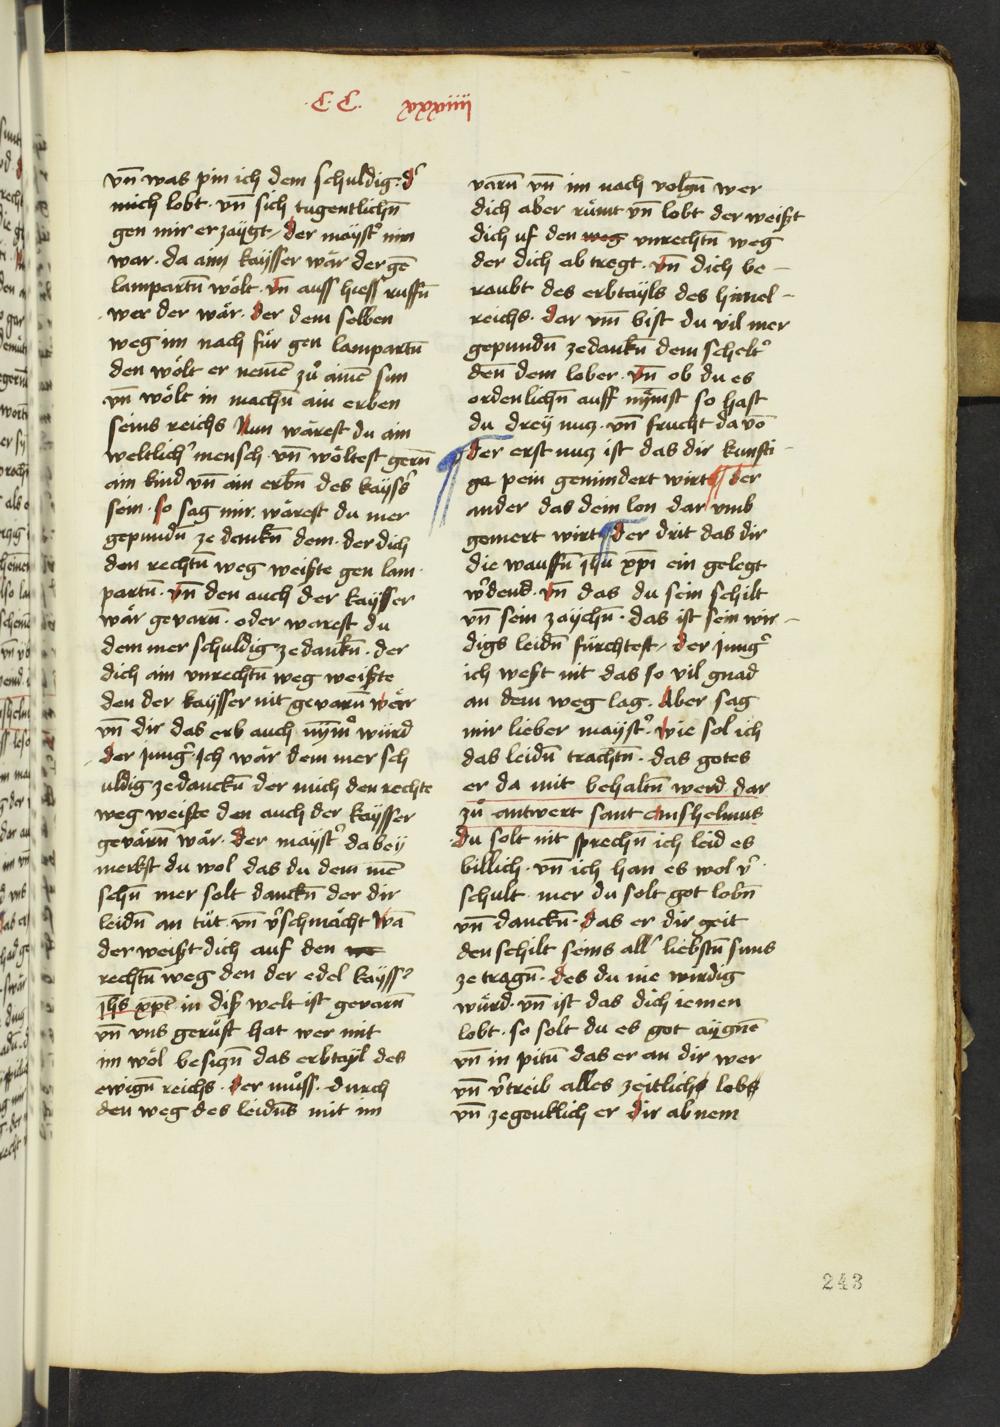 .C.C. xxxiiij
vn̄ was pin ich dem schuldig· d̓
mich lobt· vn̄ sich tugentlichn̄
gen mir erzaÿgt· der maÿst̓ nim
war· da ain kaÿsser wär der gē
lampartn̄ wölt· vn̄ auss hiess ruffn̄
wer der wär· der dem selben
weg im nach für gen lampartn̄
den wölt er nemē zů ainē sun
vn̄ wölt in machn̄ ain erben
seins reichs Nun wärest du ain
weltlich̓ mensch· vn̄ wöltest gern̄
ain kind vn̄ ain erbn̄ des kaÿss̓
sein· so sag mir· wärest du mer
gepundn̄ ze dankn̄ dem· der dich
den rechtn̄ weg weißte gen lam·
partn̄· vn̄ den auch der kaÿsser
wär geuarn̄· oder werest du
dem mer schuldig ze dankn̄· der
dich ain vnrechtn̄ weg weißte
den der kaÿsser nit geuarn̄ wër
vn̄ dir das erb auch nÿm̄ würd
der jung̓· Ich wär dem mer sch
uldig ze danckn̄ der mich den rechte
weg weißte den auch der kaÿsser
geuärn̄ wär· der maÿst̓ da beÿ
merkst du wol das du dem mē
schn̄ mer solt danckn̄ der dir
leidn̄ an tüt· vn̄ v̓schmächt Wā
der weißt dich auf den we
rechtn̄ weg den der edel kaÿss̓
jhs xpc̄ in diß welt ist geuarn̄
vn̄ vns gerüst hat wer mit
im wöl besiczn̄ das erbtaÿl des
ewign̄ reichs· der můss· durch
den weg des leidn̄s mit im
varn̄ vn̄ im nach volgn̄ wer
dich aber rümt vn̄ lobt der weißt
dich uf den weg vnrechtn̄ weg
der dich ab tregt· vn̄ dich be-
raubt des erbtaÿls des himel-
reichs· dar vm̄ bist du vil mer
gepundn̄ ze dankn̄ dem schelt̓
den̄ dem lober· vn̄ ob du es
ordenlichn̄ auff nÿmst so hast
du dreÿ nucz· vn̄ frucht da vō
der erst nucz ist das dir kunfti-
ge pein gemindert wirt der
ander das dein lon dar vmb
gemert wirt der drit das dir
die wauffn̄ jhū xpī ein gelegt
w̓dend· vn̄ das du sein schilt
vn̄ sein zaÿchn̄· das ist sein wir-
digs leidn̄ fürchtest· der jung̓
ich west nit das so vil gnad
an dem weg lag· Aber sag
mir lieber maÿst̓· wie sol ich
das leidn̄ trachtn̄· das gotes
er da mit behaltn̄ werd dar
zů antwert sant anshelmus
du solt nit sprechn̄ ich leid es
billich· vn̄ ich han es wol v̓
schult· mer du solt got lobn̄
vn̄ danckn̄· das er dir geit
den schilt seins all̓ liebstn̄ suns
ze tragn̄· des du nie wirdig
würd· vn̄ ist das dich iemen
lobt· so solt du es got aÿgnē
vn̄ in pitn̄ das er an dir wer
vn̄ v̓treib alles zeitlichs lobs
vn̄ zegenklich er dir ab nem
243